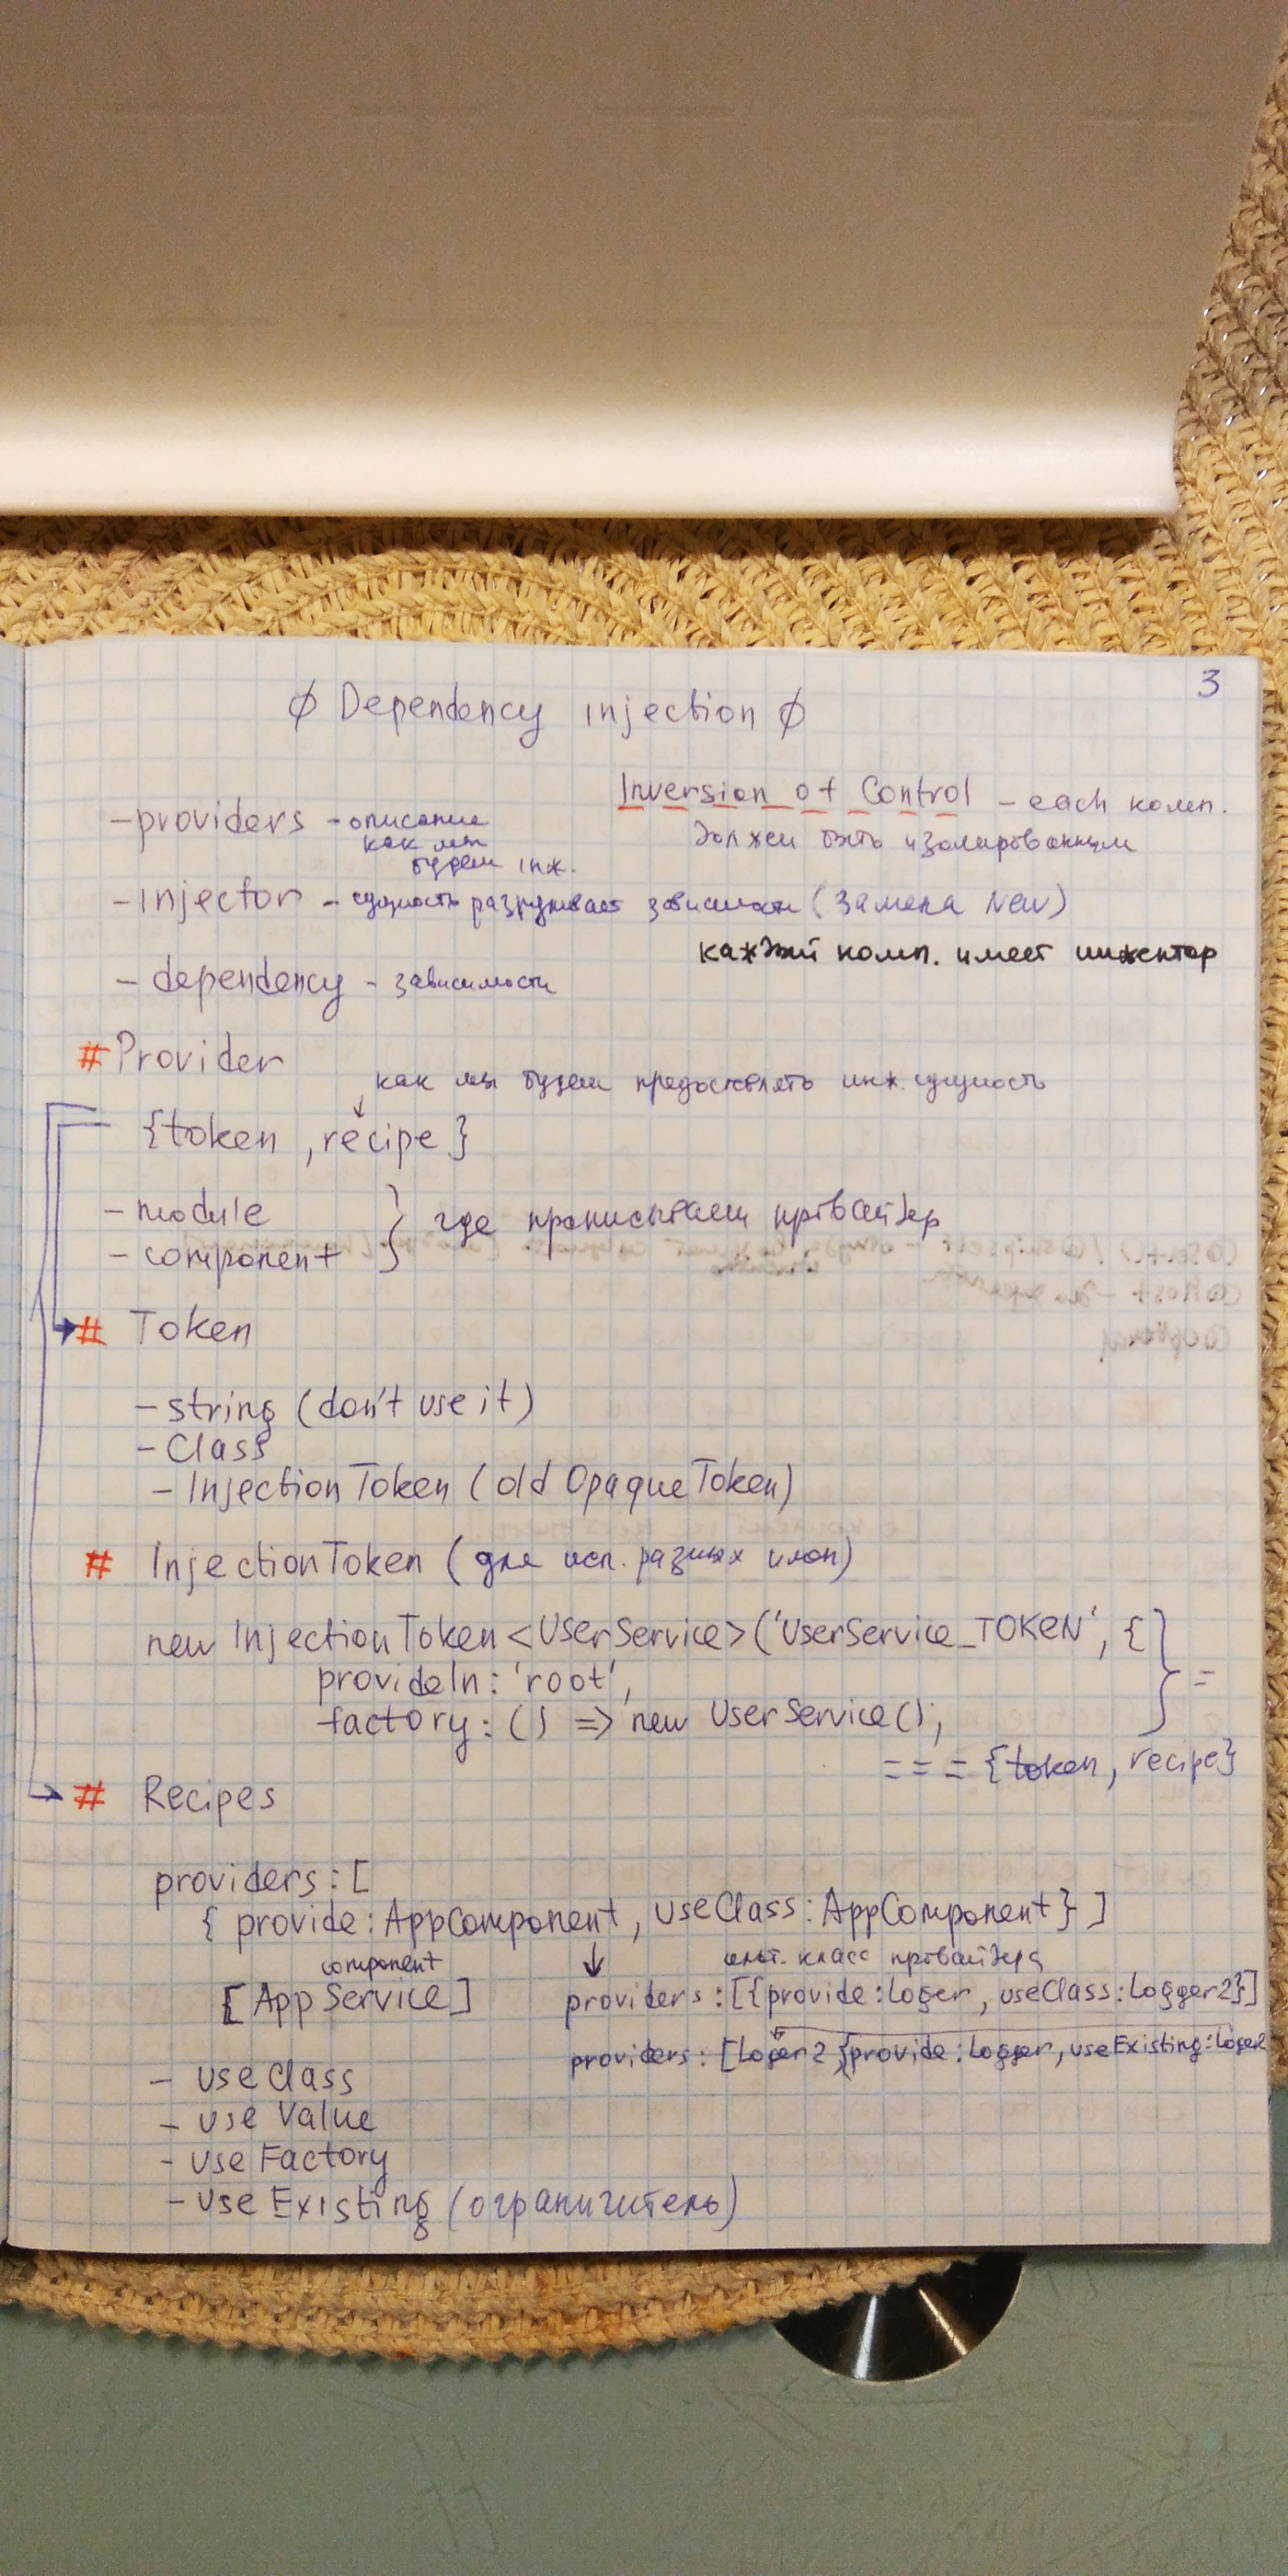 3
∅ Dependency injection ∅
Inversion of Control - each комп.
должен быть изолированным
- providers - описание
как мы
будем инж.
- injector - сущность разруливает зависимости (замена New)
каждый комп. имеет инжектор
- dependency - зависимости
# Provider
как мы будем предоставлять инж. сущность
{token, recipe}
- module
- component } где прописываем провайдер
# Token
- string (don't use it)
- Class
- InjectionToken (old OpaqueToken)
# InjectionToken (для исп. разных)
new InjectionToken<UserService>('UserService_TOKEN', {
provideIn: 'root',
factory: () => new UserService(); } =
=== {token, recipe}
# Recipes
providers: [
{ provide: AppComponent, useClass: AppComponent} ]
component ↓ класс провайдера
[AppService] providers: [{provide: Loger, useClass: Logger2}]
providers: [Loger2, {provide: Logger, useExisting: Loger2
- useClass
- use Value
- use Factory
- use Existing (ограничитель)